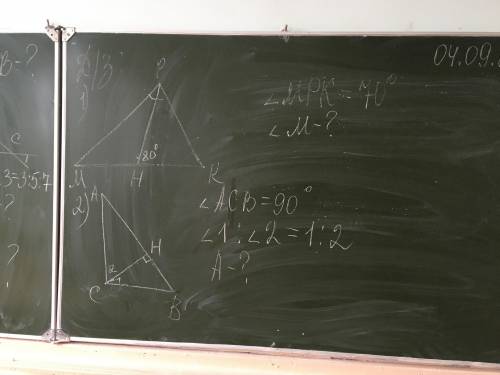 04.09.
В-?
Д/З:
1)
Р
∠МРК = 70°
∠М-?
80°
М
Н
К
С
3=3:5:7
?
2)
А
∠АСВ = 90°
∠1:∠2=1:2
А-?
Н
2
1
С
В
?